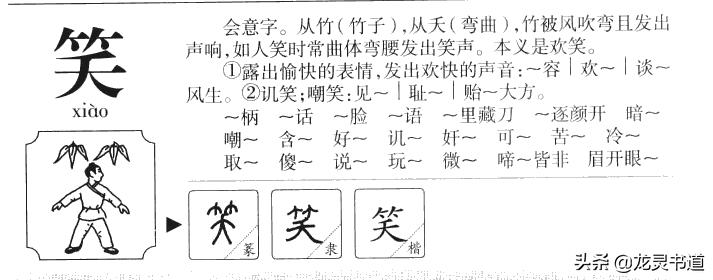 笑
xiào
会意字。从竹(竹子),从夭(弯曲),竹被风吹弯且发出
声响,如人笑时常曲体弯腰发出笑声。本义是欢笑。
①露出愉快的表情,发出欢快的声音:~容|欢~|谈~
风生。②讥笑;嘲笑:见~|耻~|贻~大方。
~柄 ~话 ~脸 ~语 ~里藏刀 ~逐颜开 暗~
嘲~ 含~ 好~ 讥~ 奸~ 可~ 苦~ 冷~
取~ 傻~ 说~ 玩~ 微~ 啼~皆非 眉开眼~
笑 篆
笑 隶
笑 楷
头条 @龙灵书道